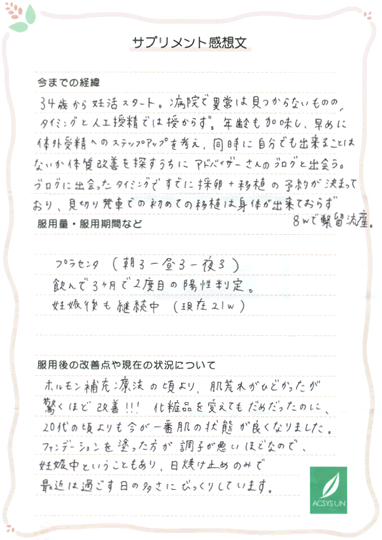 サプリメント感想文
今までの経緯
34歳から妊活スタート。病院で異常は見つからないものの、
タイミングと人工授精では授からず。年齢も加味し、早めに
体外受精へのステップアップを考え、同時に自分でも出来ることは
ないか体質改善を探すうちにアドバイザーさんのブログと出会う。
ブログに出会ったタイミングですでに採卵+移植の予約が決まって
おり、見切り発車での初めての移植は身体が出来ておらず
8wで繋留流産。
服用量・服用期間など
プラセンタ (朝3-昼3-夜3)
飲んで3ヶ月で2度目の陽性判定。
妊娠後も継続中 (現在21w)
服用後の改善点や現在の状況について
ホルモン補充療法の頃より、肌荒れがひどかったが
驚くほど改善!!! 化粧品を変えてもだめだったのに、
20代の頃よりも今が一番肌の状態が良くなりました。
ファンデーションを塗った方が調子が悪いほどなので、
妊娠中ということもあり、日焼け止めのみで
最近は過ごす日の多さにびっくりしています。
ACSYSUN